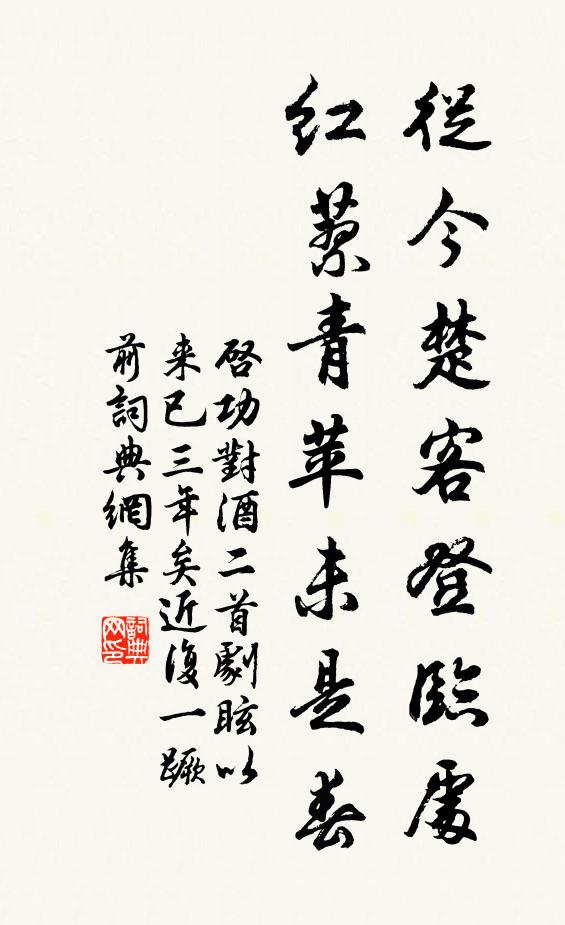 從今楚客登臨處
紅青苹未是春
啓功對酒二首劇眩以
来已三年矣近復一蹶
前詞典網集
詞典网印